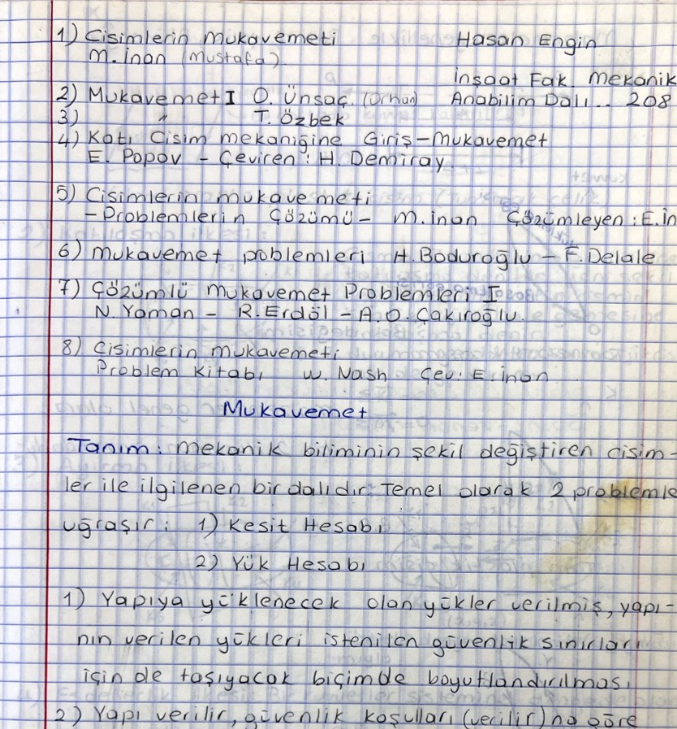 1) Cisimlerin Mukavemeti Hasan Engin
M. İnan (Mustafa)
İnşaat Fak. Mekanik
2) Mukavemet I O. Ünsaç. (Orhan) Anabilim Dalı.. 208
3) " T. Özbek
4) Katı Cisim mekaniğine Giriş-Mukavemet
E. Popov - Çeviren: H. Demiray
5) Cisimlerin mukavemeti
-Problemlerin Çözümü- M. inan Çözümleyen: E. İn
6) Mukavemet poblemleri H. Boduroğlu - F. Delale
7) Çözümlü Mukavemet Problemleri I
N. Yaman - R. Erdöl - A.O. Çakıroğlu.
8) Cisimlerin mukavemeti
Problem Kitabı W. Nash Çev: E. inan
Mukavemet
Tanım: Mekanik biliminin şekil değiştiren cisim-
ler ile ilgilenen bir dalıdır. Temel olarak 2 problemle
uğraşır: 1) Kesit Hesabı
2) Yük Hesabı
1) Yapıya yüklenecek olan yükler verilmiş, yapı-
nın verilen yükleri istenilen güvenlik sınırları
için de taşıyacak biçimde boyutlandırılması
2) Yapı verilir, güvenlik koşulları (verilir) na göre